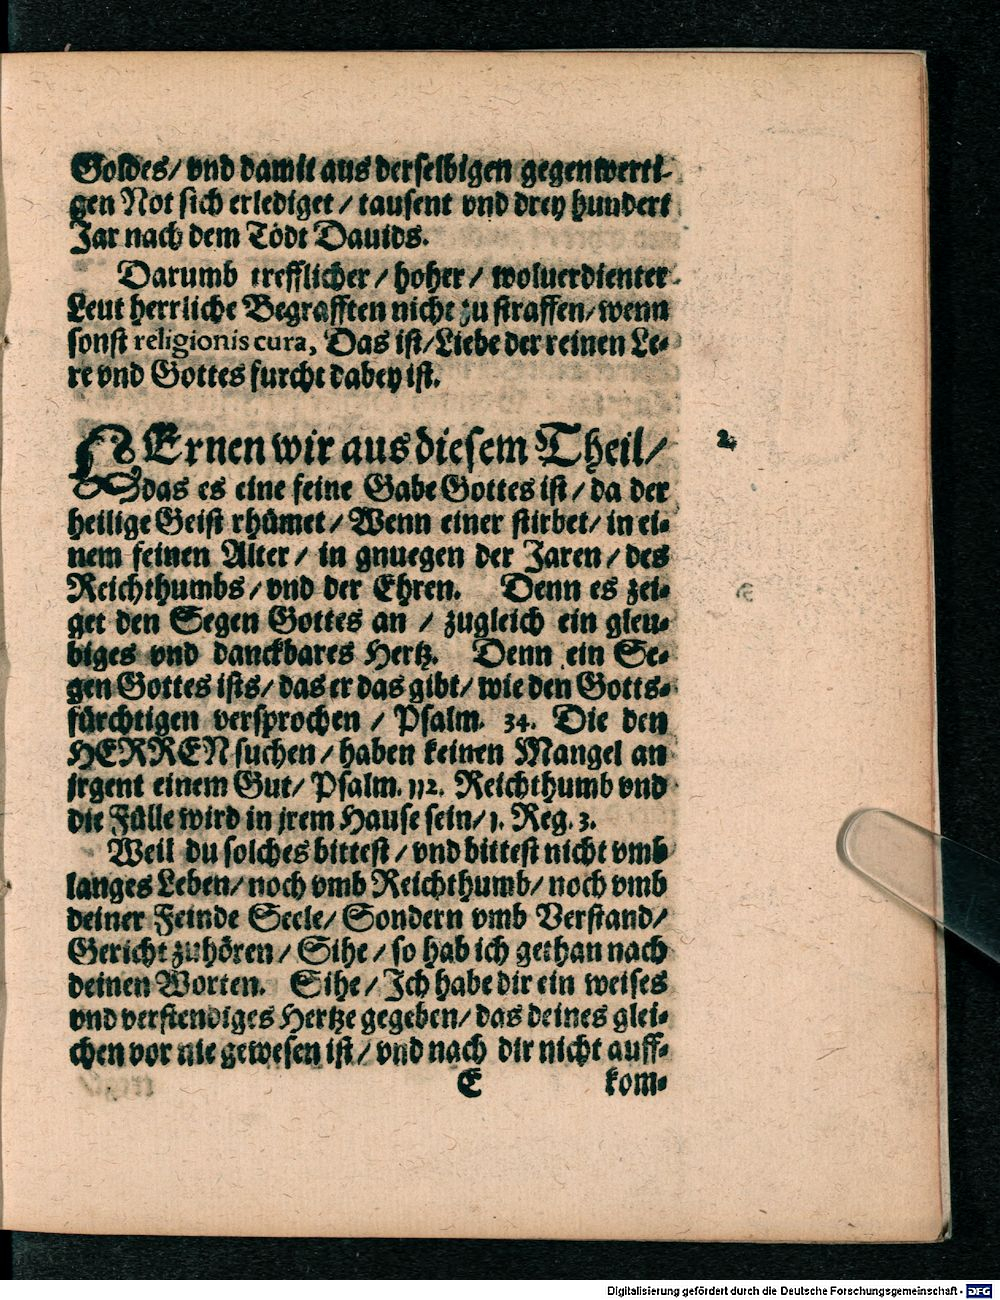 Goldes/ vnd damit aus derselbigen gegenwerti-
gen Not sich erlediget / tausent vnd drey hundert
Jar nach dem Tödt Dauids.
Darumb trefflicher / hoher / woluerdienter
Leut herrliche Begrafften nicht zu straffen/ wenn
sonst religionis cura, Das ist/ Liebe der reinen Le-
re vnd Gottes furcht dabey ist.
LErnen wir aus diesem Theil/
2.
das es eine feine Gabe Gottes ist / da der
heilige Geist rhümet / Wenn einer stirbet / in ei-
nem feinen Alter / in gnuegen der Jaren / des
Reichthumbs / vnd der Ehren. Denn es zei-
get den Segen Gottes an / zugleich ein gleu-
biges vnd danckbares Hertz. Denn ein Se-
gen Gottes ists/ das er das gibt/ wie den Gotts-
fürchtigen versprochen / Psalm. 34. Die den
HERREN suchen / haben keinen Mangel an
jrgent einem Gut/ Psalm. 112. Reichthumb vnd
die Fülle wird in jrem Hause sein/ 1. Reg. 3.
Weil du solches bittest / vnd bittest nicht vmb
langes Leben/ noch vmb Reichthumb/ noch vmb
deiner Feinde Seele/ Sondern vmb Verstand/
Gericht zu hören / Sihe / so hab ich gethan nach
deinen Worten. Sihe / Ich habe dir ein weises
vnd verstendiges Hertze gegeben/ das deines glei-
chen vor nie gewesen ist / vnd nach dir nicht auff-
E kom-
Digitalisierung gefördert durch die Deutsche Forschungsgemeinschaft - DFG